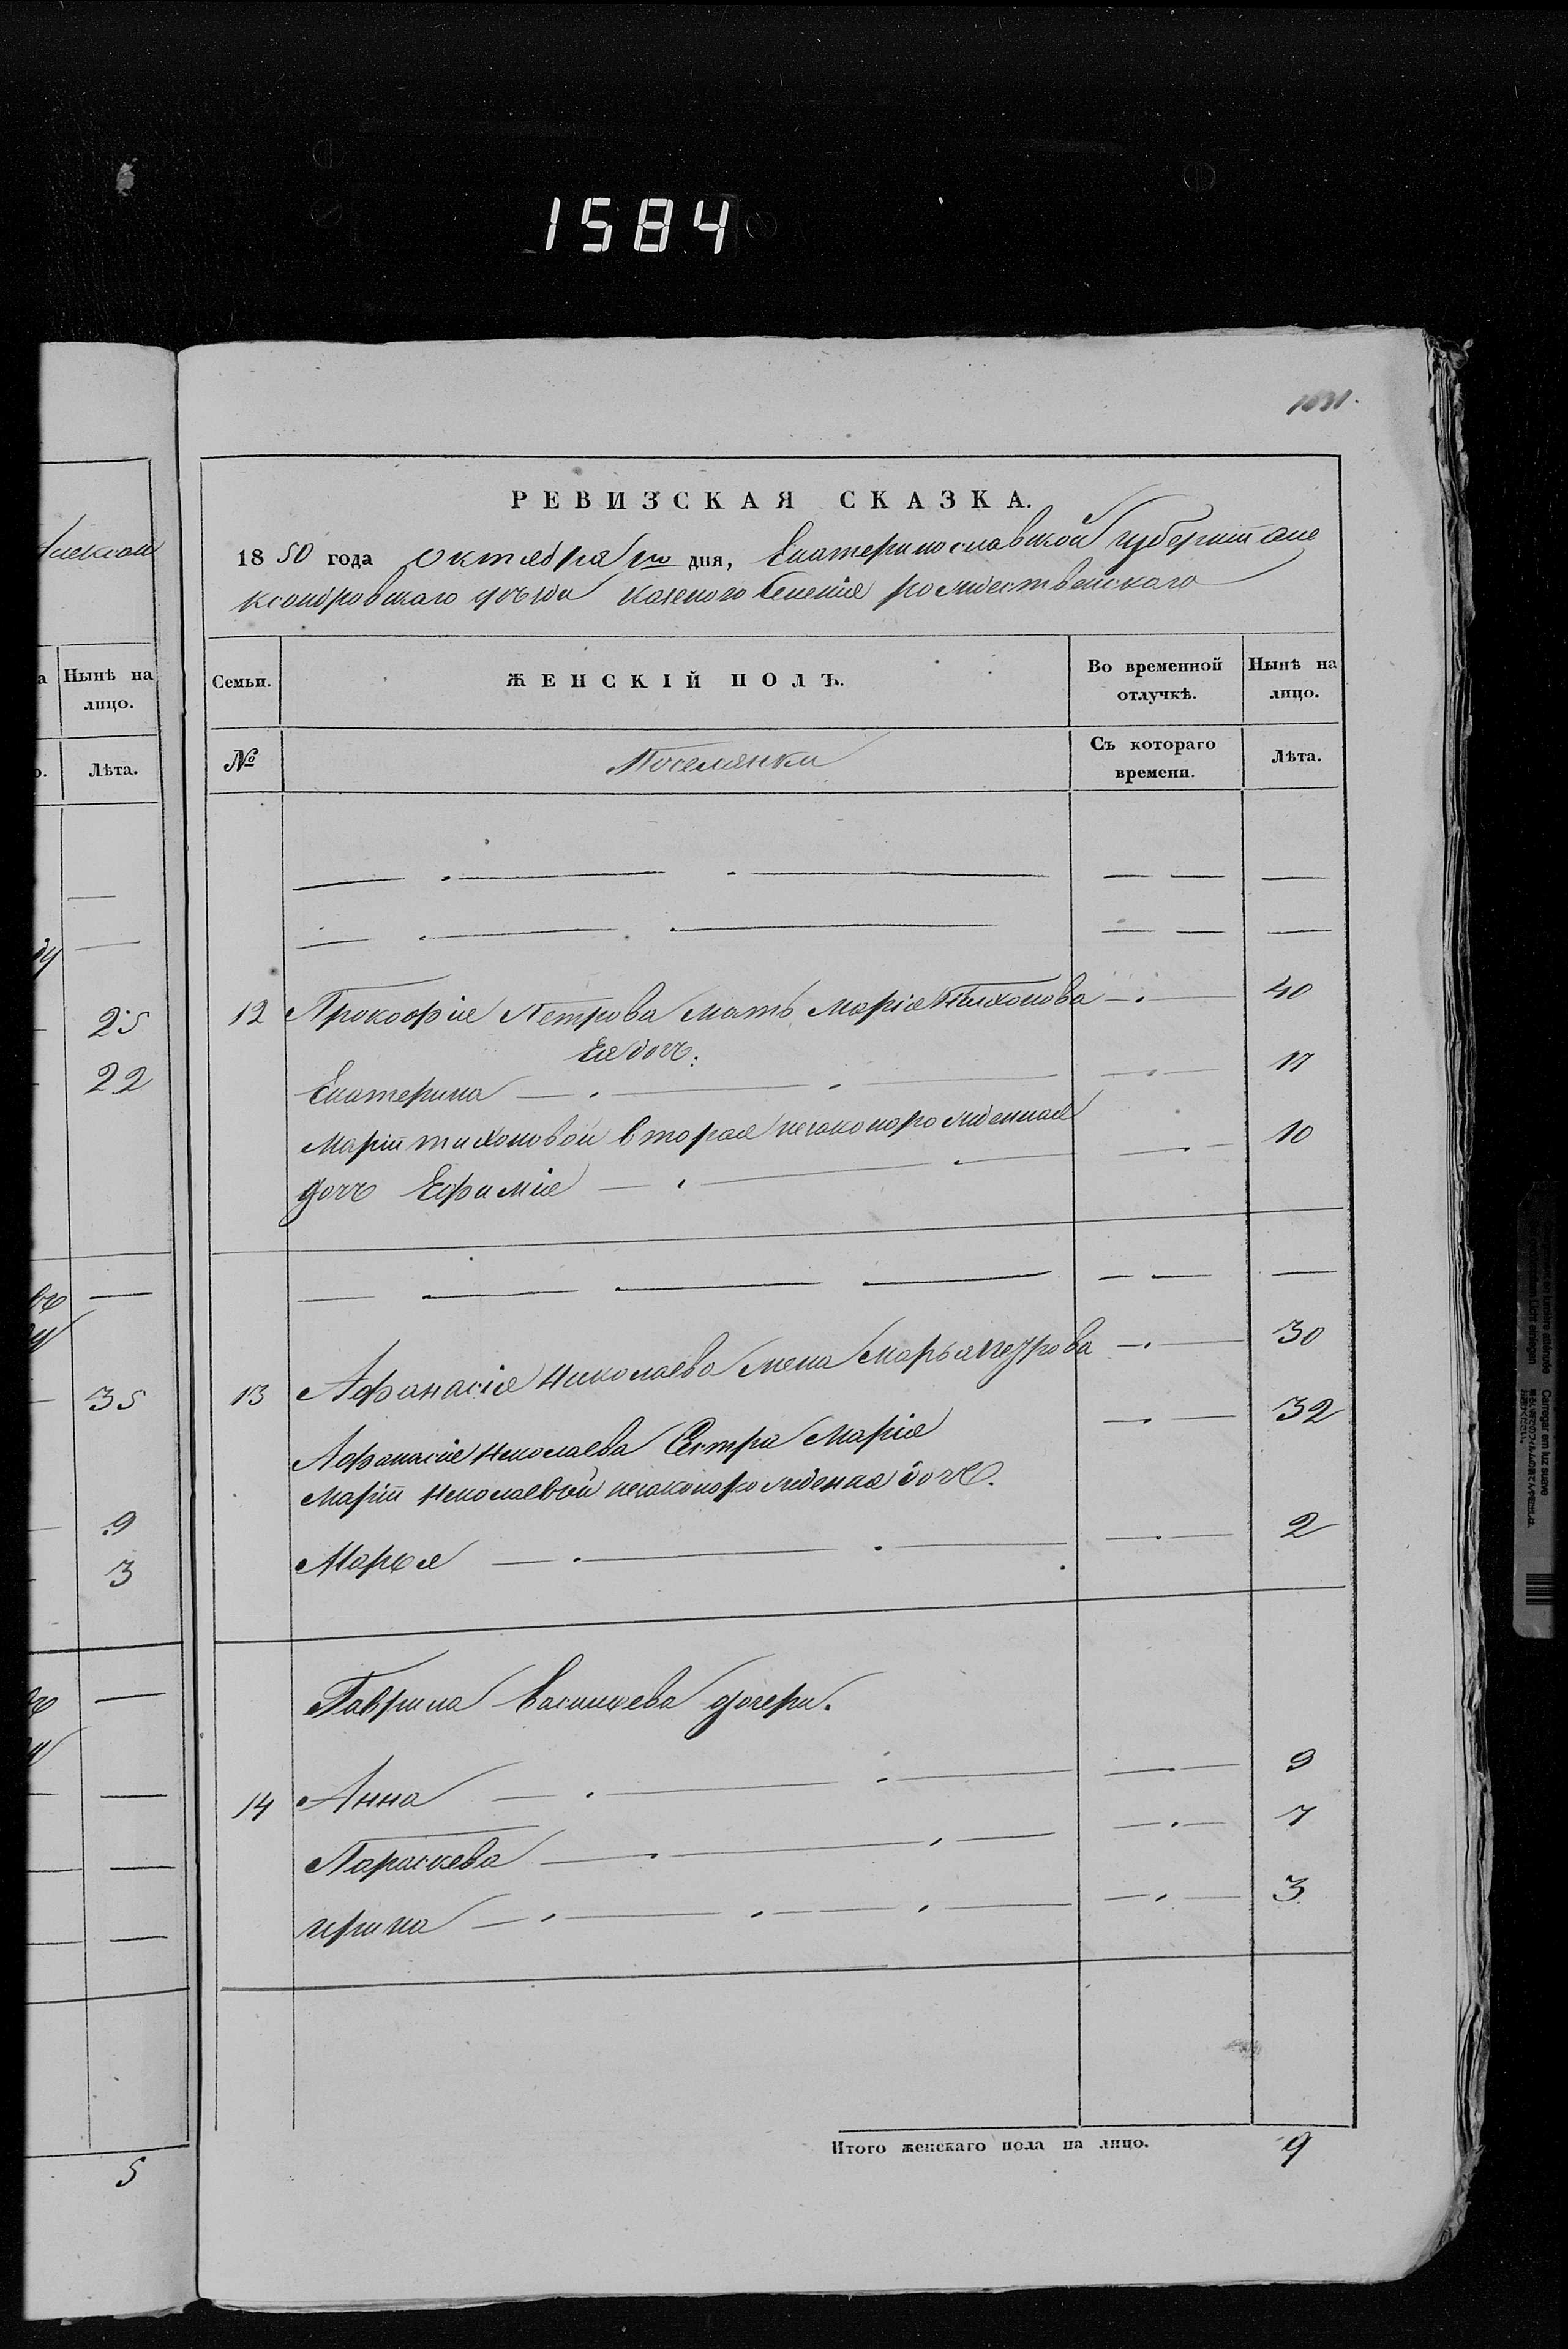 1584
1031.
РЕВИЗСКАЯ СКАЗКА.
1850 года Октября 1го дня, Екатеринославской губерніи алек
ксандровскаго уѣзда казеного Селенія рождественскаго
Семьи. ЖЕНСКІЙ ПОЛЪ. Во временной отлучкѣ. Нынѣ на лицо.
№ Поселянки Съ котораго времени. Лѣта.
12 Прокофія Петрова мать Марія Тихонова 40
Ея дочь:
Екатерина 17
Маріи тихоновой вторая незаконорожденная 10
дочь Ефимія
13 Афанасія Николаева жена Марья петрова 30
Афанасія Николаева Сестра Марія 32
Маріи Николаевой незаконорожденна дочь.
Марья 2
Гаврила Васильева дочери.
14 Анна 9
Параскева 7
ирина 3
Итого женскаго пола на лицо. 9
Алексан
Нынѣ на лицо.
Лѣта.
25
22
35
9
3
5